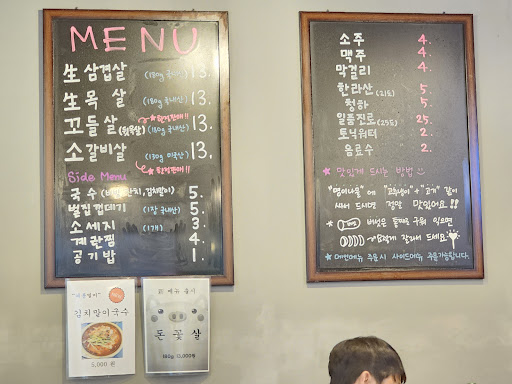 MENU
生 삼겹살 (180g 국내산) 13.
生 목 살 (180g 국내산) 13.
★한정판매!!
꼬들살 (뒷목살) (180g 국내산) 13.
소갈비살 (130g 미국산) 13.
★한정판매!!
Side Menu
국수 (비빔, 잔치, 김치말이) 5.
벌집껍데기 (1장 국내산) 5.
소세지 (1개) 3.
계란찜 4.
공기밥 1.
"얼큰말이"
김치말이국수
5,000 원
新 메뉴 출시
돈꽃살
180g 13,000원
소주 4.
맥주 4.
막걸리 4.
한라산 (21도) 5.
청하 5.
일품진로 (25도) 25.
토닉워터 2.
음료수 2.
★ 맛있게 드시는 방법
"명이나물" 에 "고추냉이" + "고기" 같이
싸서 드시면 정말 맛있어요!!
★ 버섯은 통째로 구워 익으면
잘라서 드세요
★ 메인메뉴 주문시 사이드메뉴 주문가능합니다.